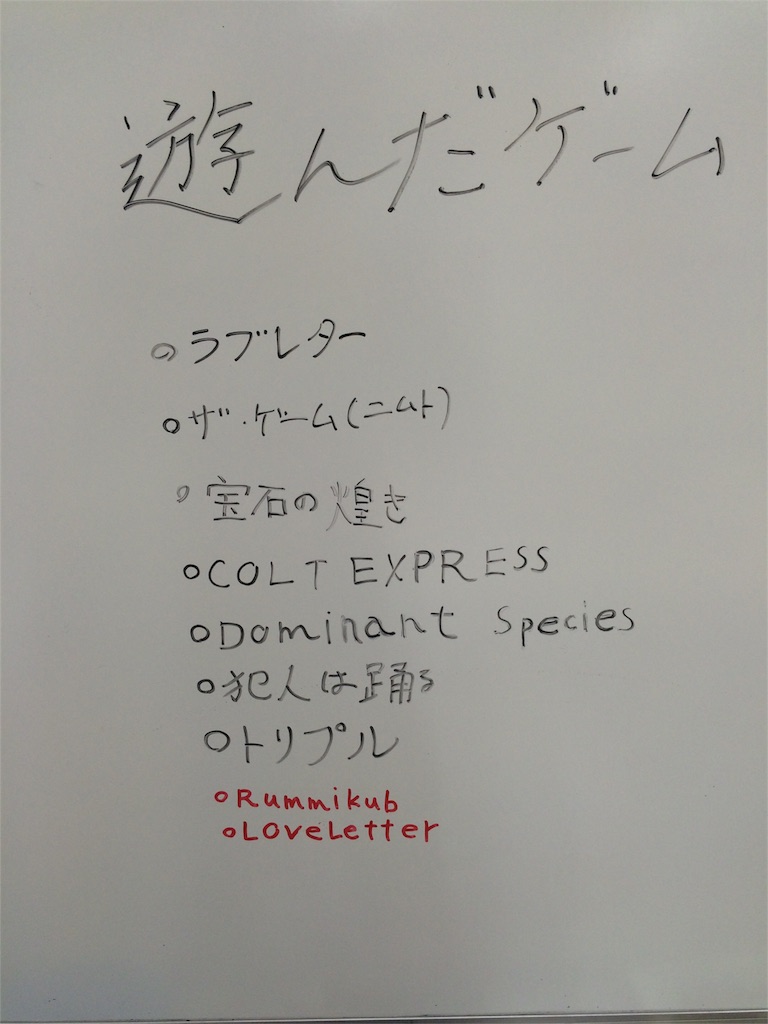 遊んだゲーム
○ラブレター
○ザ・ゲーム(ニムト)
○宝石の煌き
○COLT EXPRESS
○Dominant Species
○犯人は踊る
○トリプル
○Rummikub
○LoveLetter